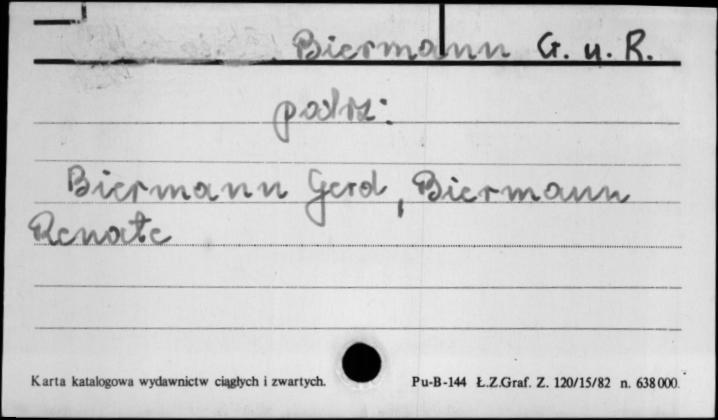 Biermann G. u. R.
patrz:
Biermann Gerd, Biermann
Renate
Karta katalogowa wydawnictw ciągłych i zwartych. Pu-B-144 Ł.Z.Graf. Z. 120/15/82 n. 638000.